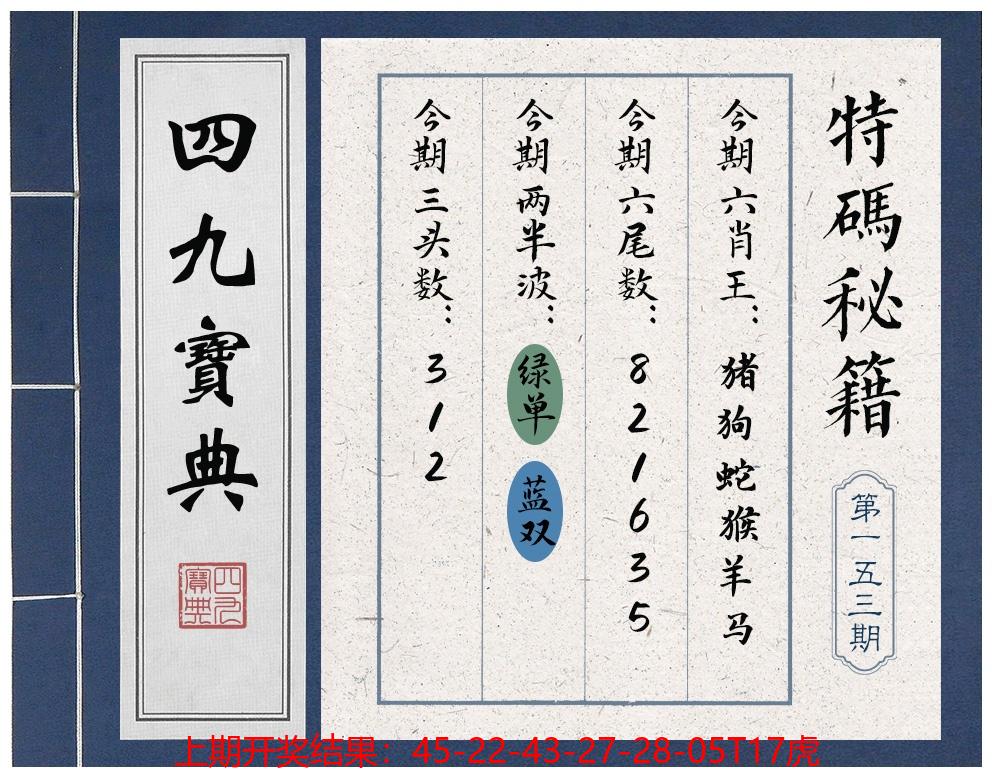 特碼秘籍
第一五三期
今期六肖王：猪狗蛇猴羊马
今期六尾数：821635
今期两半波：绿单 蓝双
今期三头数：312
四九寶典
四九寶典
上期开奖结果：45-22-43-27-28-05T17虎